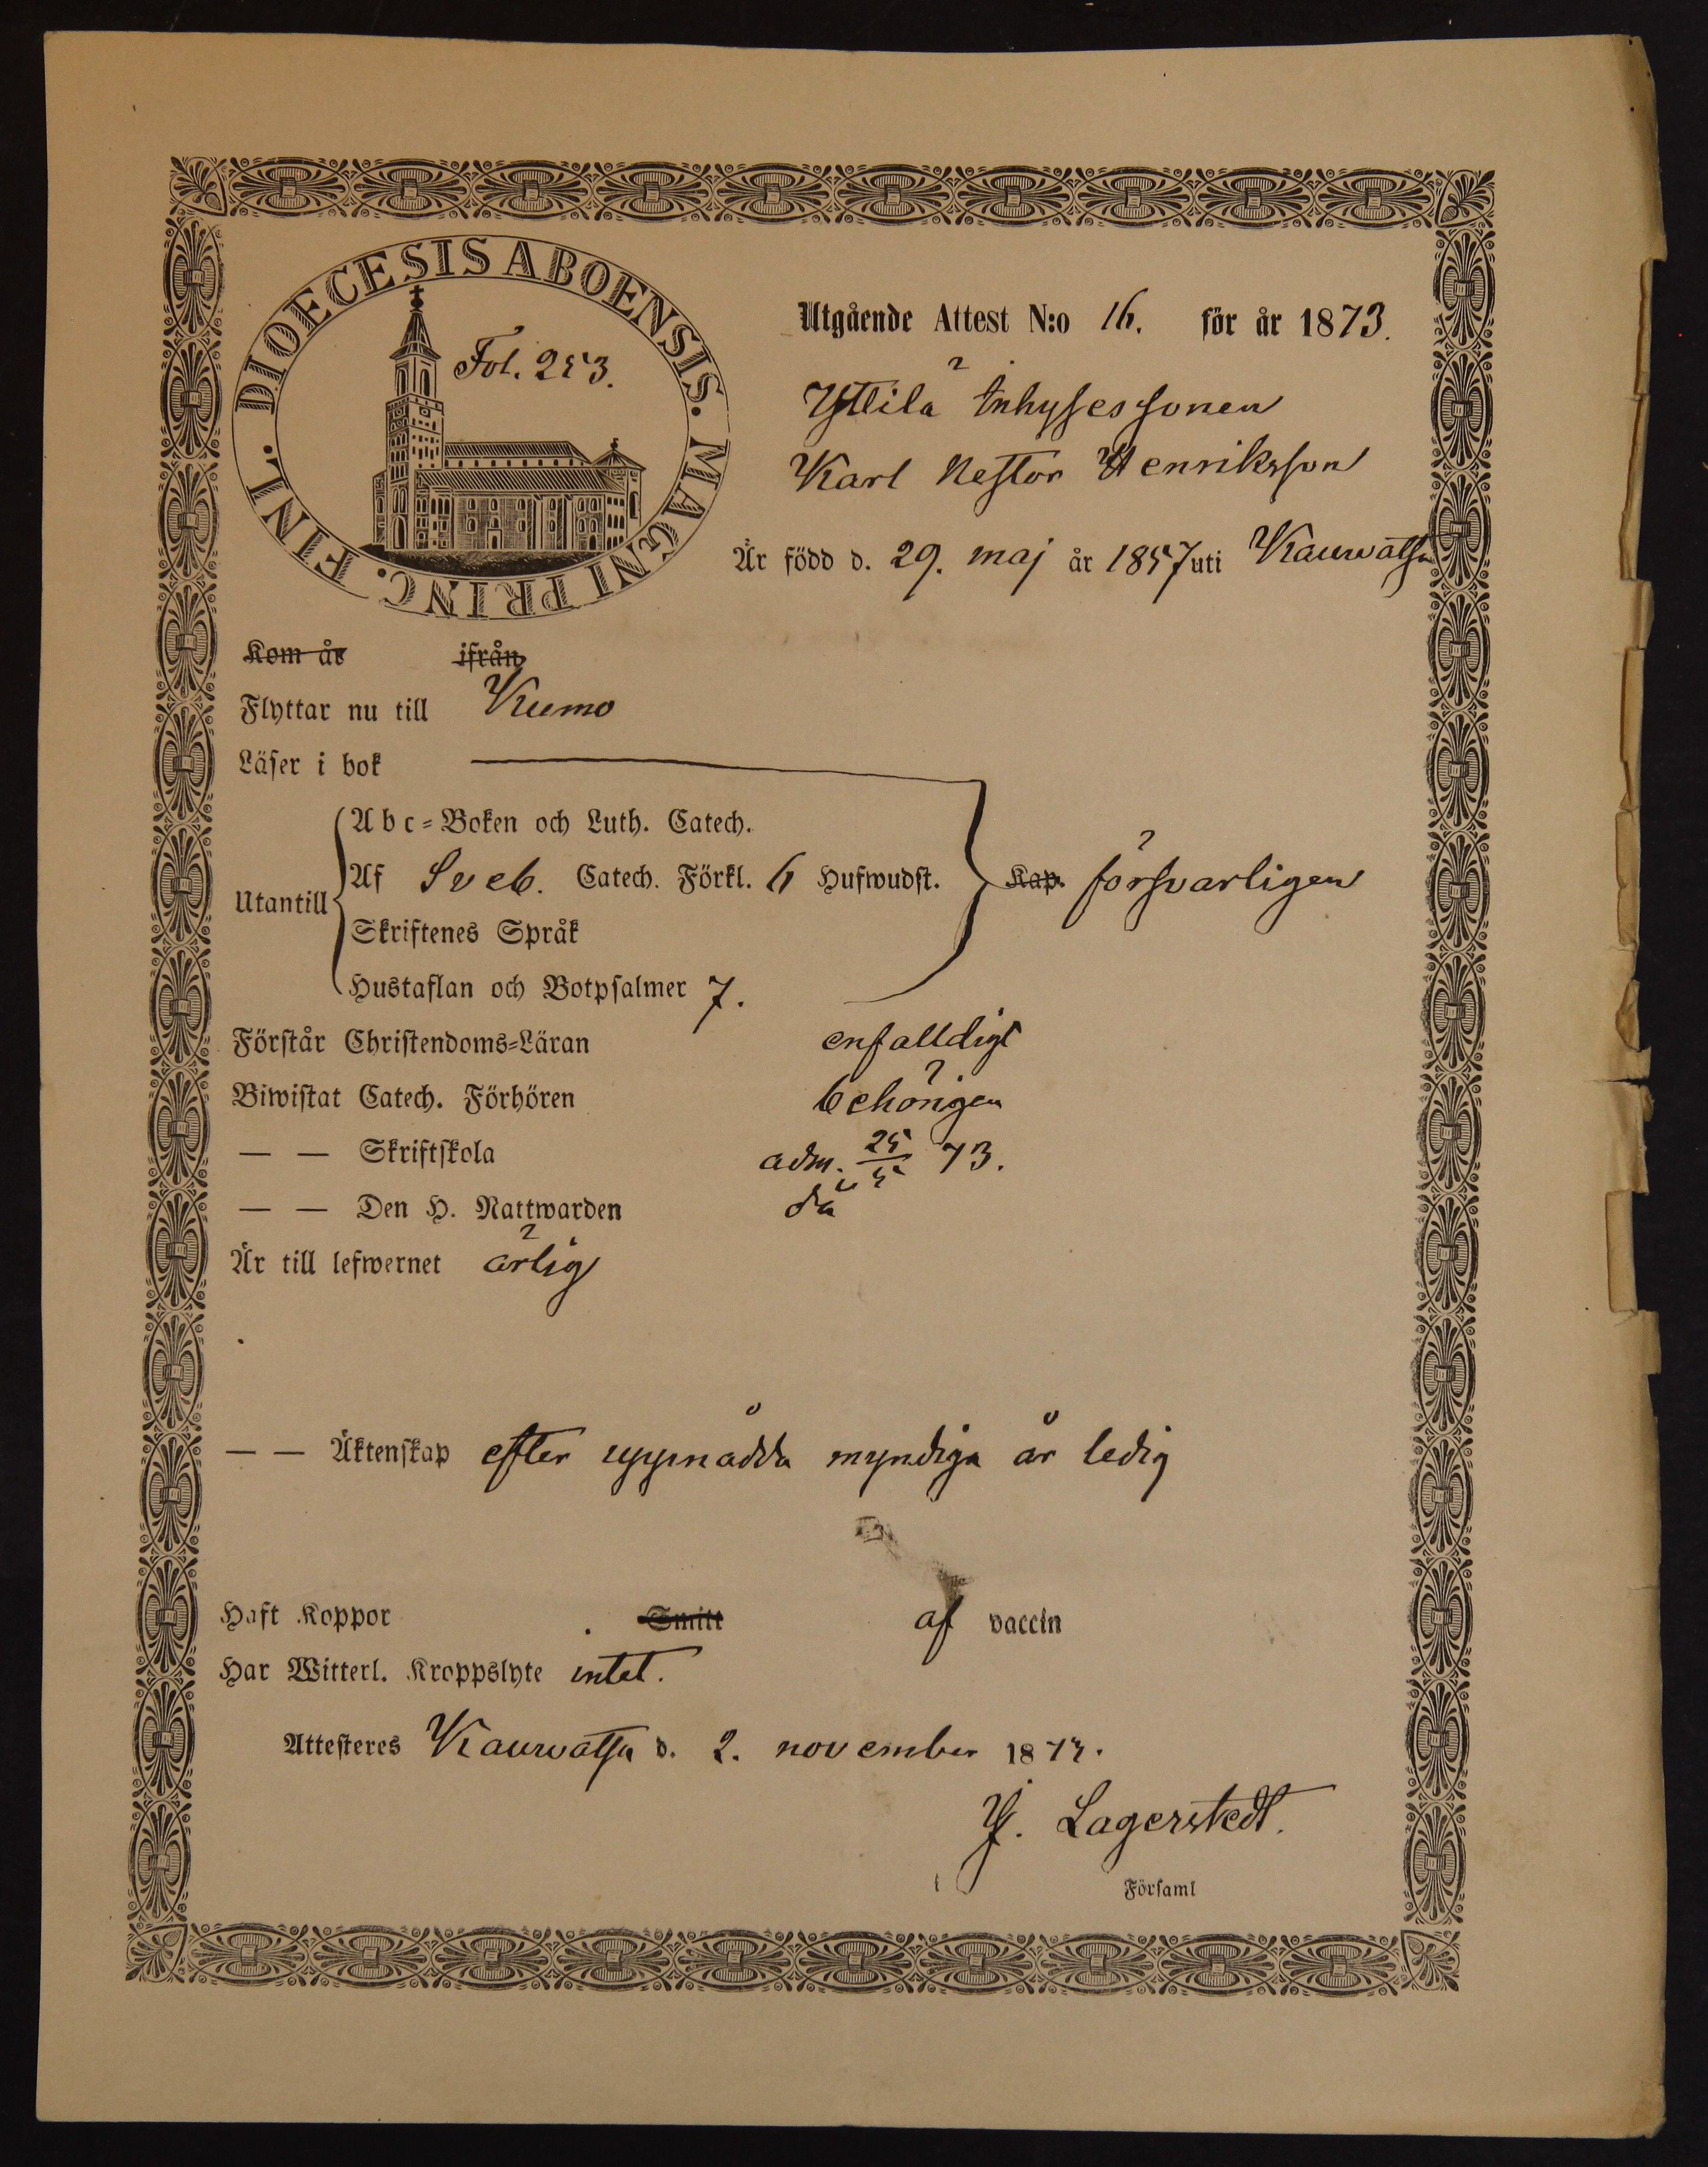 DIOECESIS ABOENSIS. MAGNI PRINC. FINL.
Fol. 253.
Utgående Attest N:o 16. för år 1873.
Yttilä Inhysessonen
Karl Nestor Henriksson
Är född d. 29. maj år 1857 uti Kauvatsa
Kom år ifrån
Flyttar nu till Kumo
Läser i bok
Utantill
Abc-Boken och Luth. Catech.
Af Sveb. Catech. Förkl. 6 Hufwudst. Kap. försvarligen
Skriftenes Språk
Hustaflan och Botpsalmer 7.
Förstår Christendoms-Läran enfalldigt
Biwistat Catech. Förhören behörigen
— — Skriftskola adm. 25/5 73.
— — Den H. Nattwarden då
Är till lefwernet ärlig
— — Äktenskap efter uppnådda myndiga år ledig
Haft Koppor Smitt af vaccin
Har Witterl. Kroppslyte intet.
Attesteres Kauvatsa d. 2. november 1873.
Lagerstedt.
Församl